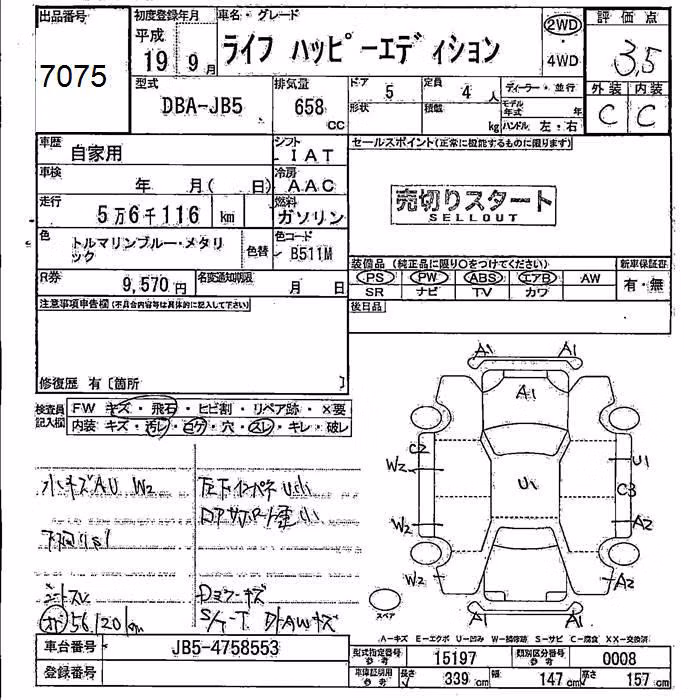 出品番号 初度登録年月 車名・グレード 2WD・4WD 評価点
7075 平成 19 9月 ライフ ハッピーエディション 3.5
型式 DBA-JB5 排気量 658 CC ドア 5 定員 4人 ディーラー・並行 外装 内装
形状 積載 kg モデル年式 年 ハンドル 左・右 C C
車歴 自家用 シフト IAT セールスポイント(正常に機能するものに限ります)
車検 年 月( 日) 冷房 AAC
売切りスタート
SELLOUT
走行 5万6千116 km 燃料 ガソリン
色 トルマリンブルー・メタリック 色替 色コード B511M
装備品 (純正品に限り○をつけてください) 新車保証書
PS PW ABS エアB AW 有・無
SR ナビ TV カワ
R券 9,570円 名変通知期限 月 日
後日品
注意事項申告欄(不具合内容等は具体的に記入して下さい)
修復歴 有〔箇所 〕
検査員記入欄 FW キズ・飛石・ヒビ割・リペア跡・×要
内装 キズ・汚レ・コゲ・穴・スレ・キレ・破レ
A1 A1
A1
C2 W2 U1 U1
C3
W2 A2
W2 A2
A1 A1
スペア
小キズAU W2
下回りS1
56,120km
S/T-T D/AWキズ
A-キズ E-エクボ U-凹み W-補修跡 S-サビ C-腐食 XX-交換済
車台番号 JB5-4758553 型式指定番号 参考 15197 類別区分番号 参考 0008
登録番号 車庫証明用 参考 長さ 339cm 幅 147cm 高さ 157cm